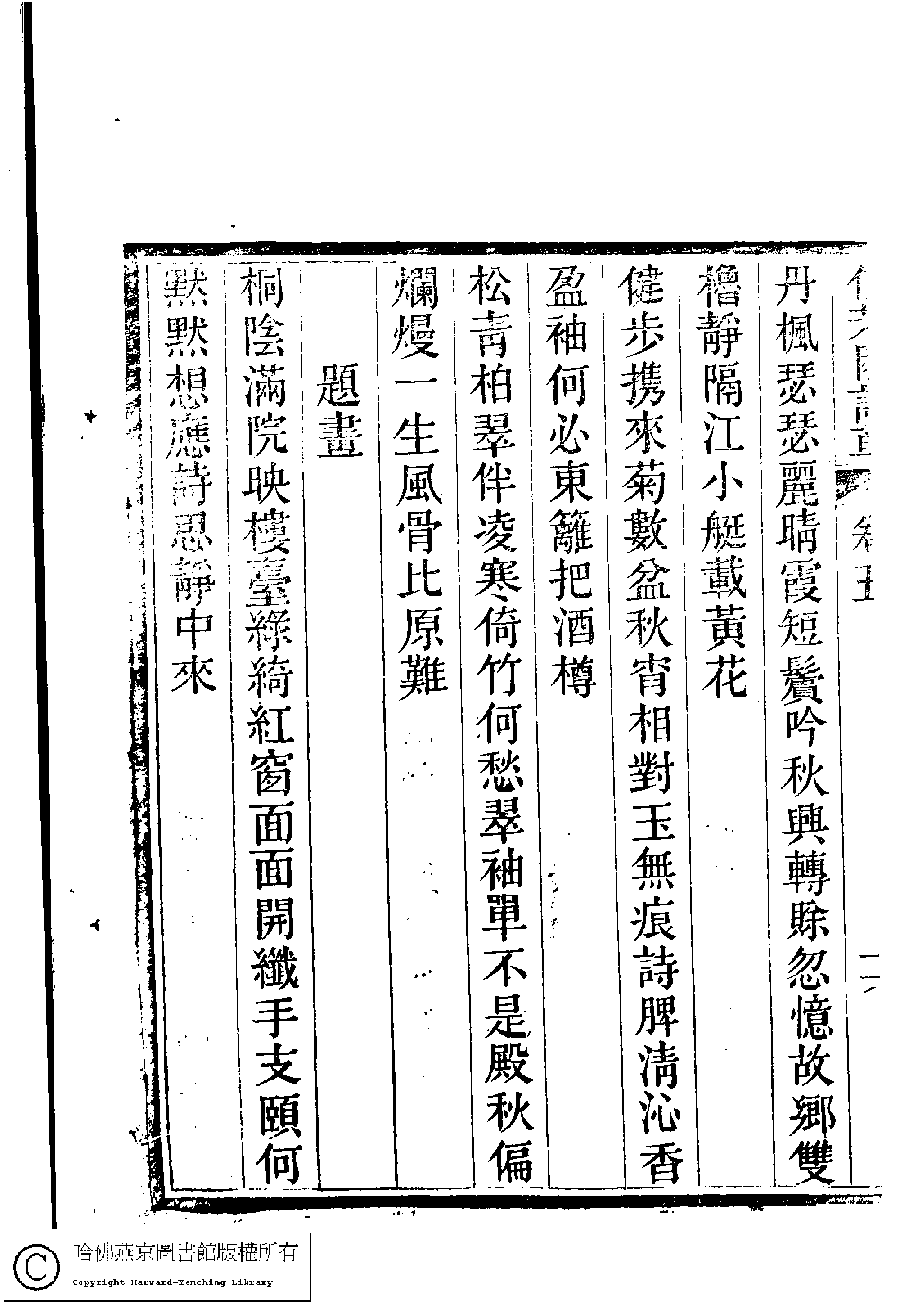 丹楓瑟瑟麗晴霞短鬢吟秋興轉賒忽憶故鄉雙
櫓靜隔江小艇載黃花
健步携來菊數盆秋宵相對玉無痕詩脾淸沁香
盈袖何必東籬把酒樽
松靑柏翠伴凌寒倚竹何愁翠袖單不是殿秋偏
爛熳一生風骨比原難
題畫
桐陰滿院映樓臺綠綺紅窗面面開纖手支頤何
默默想應詩思靜中來
哈佛燕京圖書館版權所有
Copyright Harvard-Yenching Library